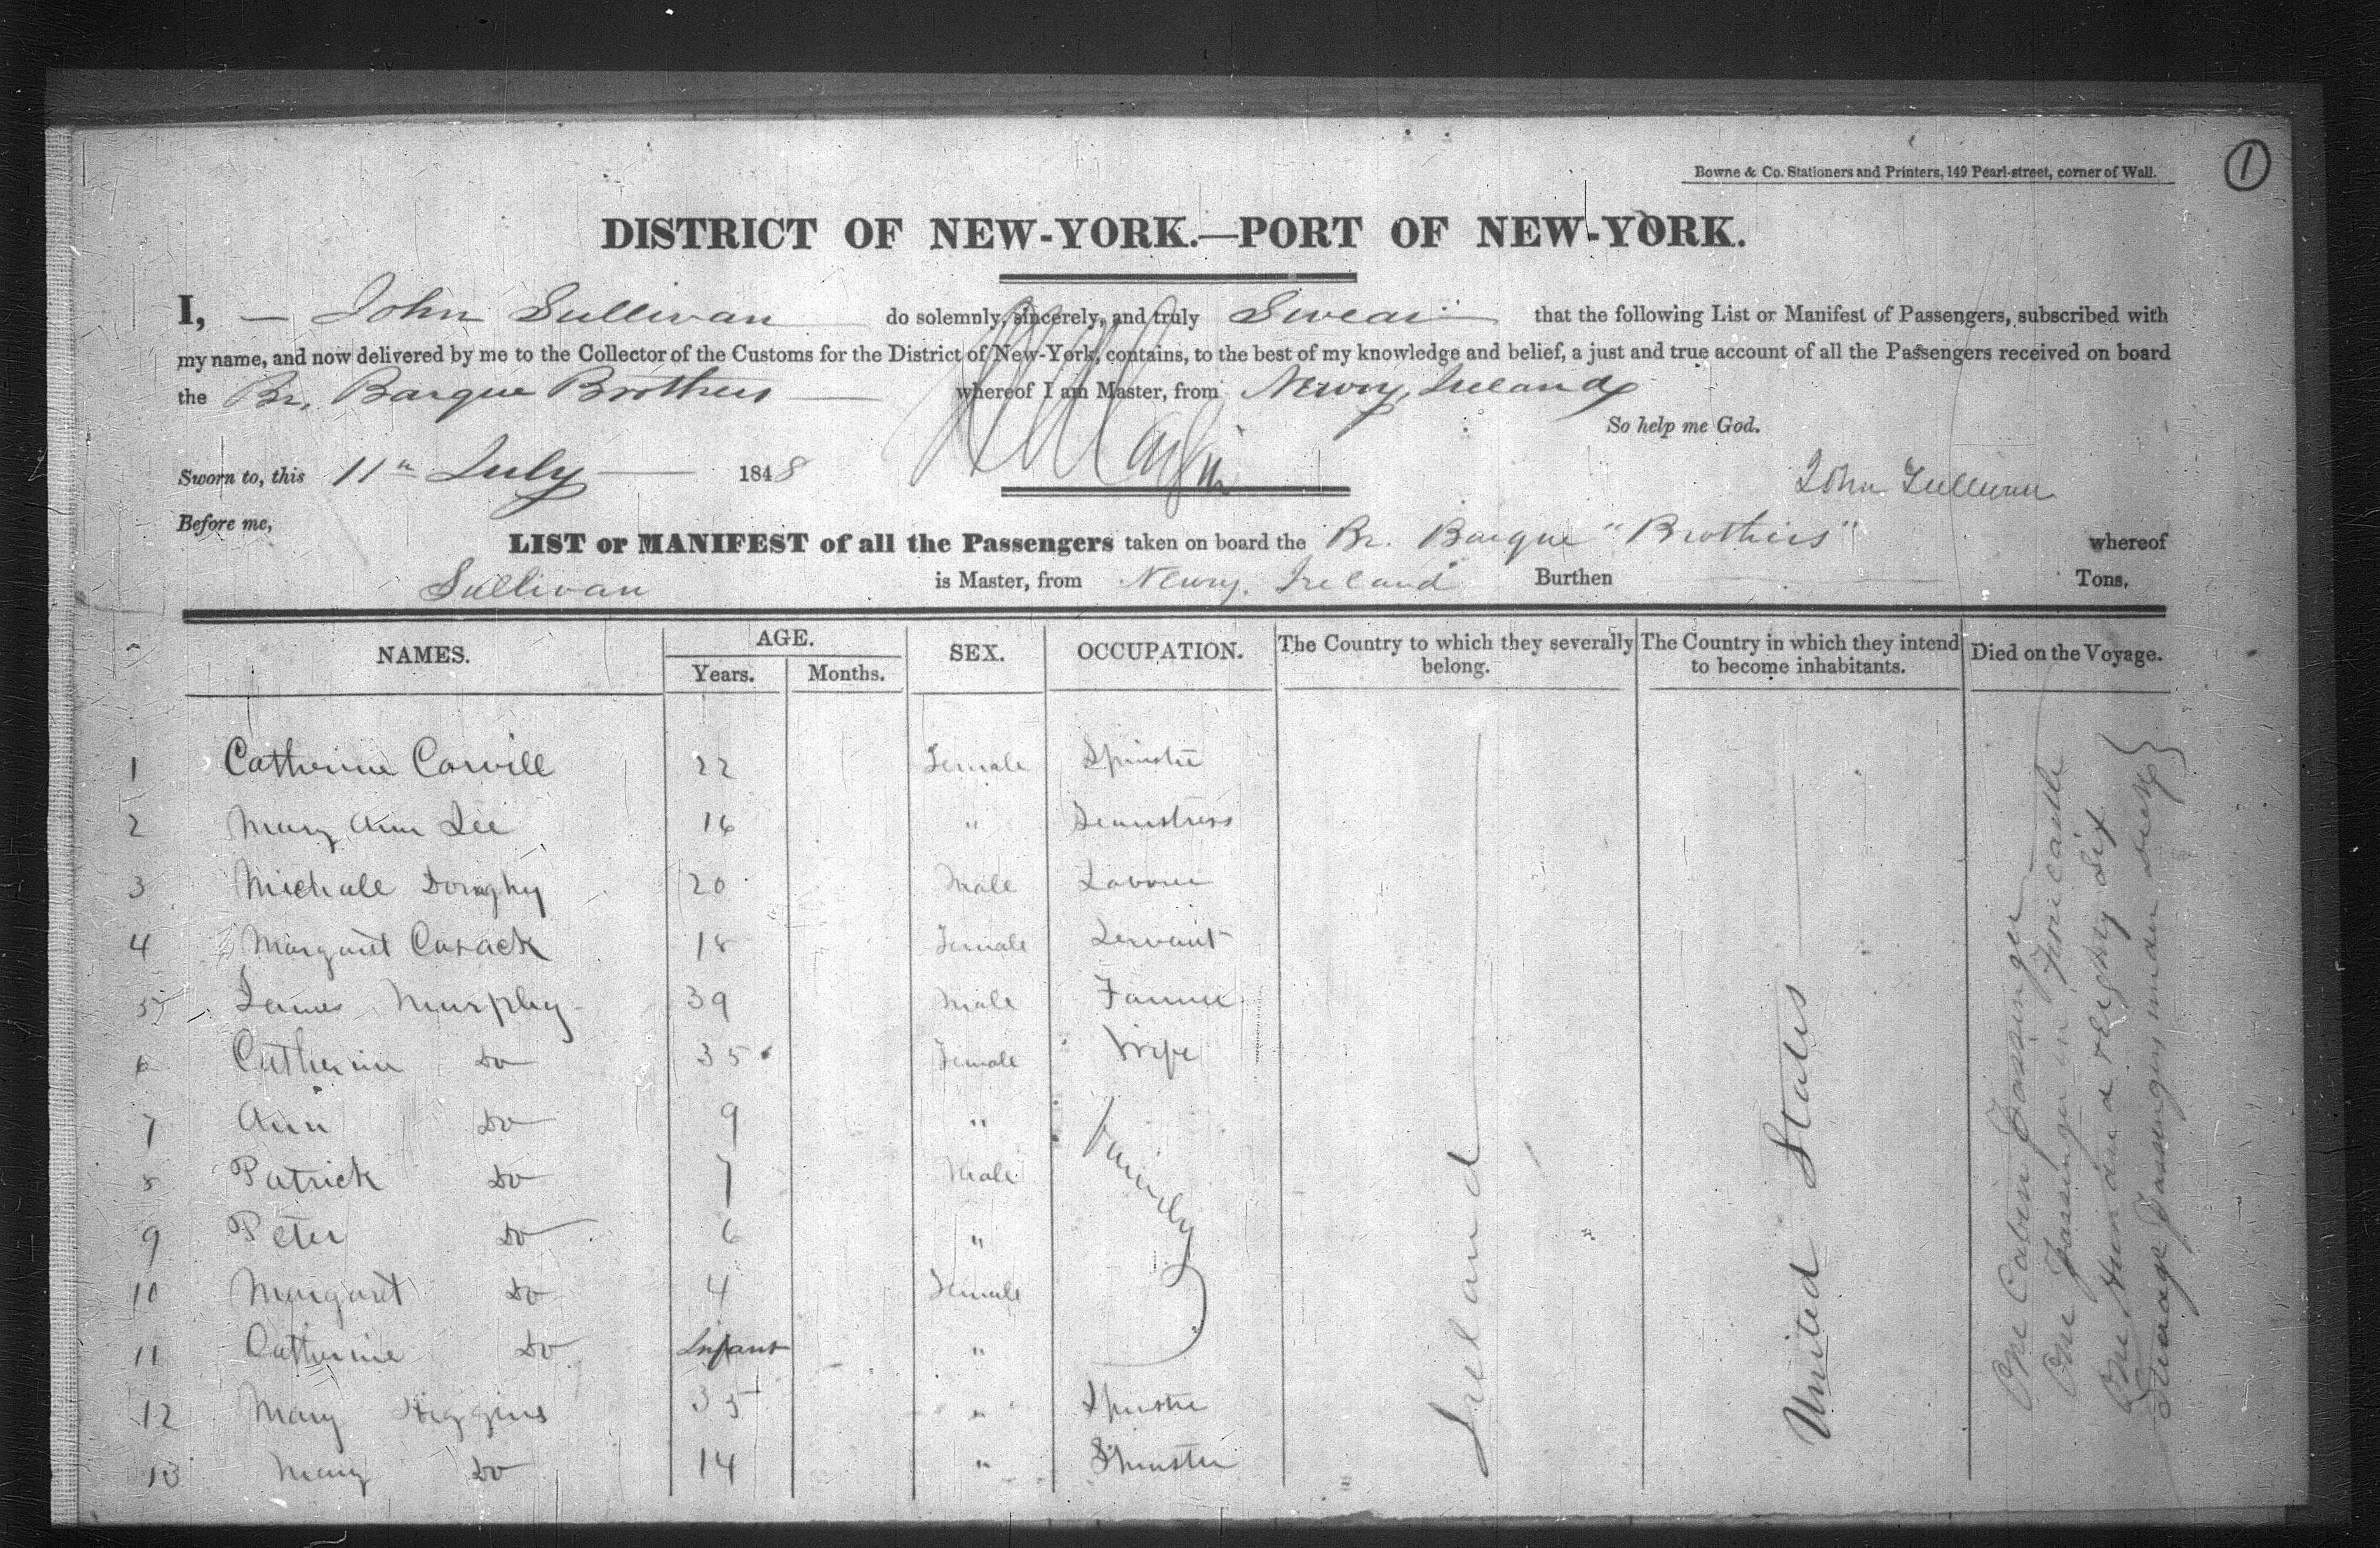 1
Bowne & Co. Stationers and Printers, 149 Pearl-street, corner of Wall.
DISTRICT OF NEW-YORK.—PORT OF NEW-YORK.
I, — John Sullivan do solemnly, sincerely, and truly Swear that the following List or Manifest of Passengers, subscribed with
my name, and now delivered by me to the Collector of the Customs for the District of New-York, contains, to the best of my knowledge and belief, a just and true account of all the Passengers received on board
the Br. Barque Brothers whereof I am Master, from Newry, Ireland
So help me God.
Sworn to, this 11th July 1848
John Sullivan
Before me,
LIST or MANIFEST of all the Passengers taken on board the Br. Barque "Brothers" whereof
Sullivan is Master, from Newry, Ireland Burthen Tons,
NAMES. AGE. Years. Months. SEX. OCCUPATION. The Country to which they severally belong. The Country in which they intend to become inhabitants. Died on the Voyage.
1 Catherine Carvill 22 Female Spinster
2 Mary Ann Lee 16 " Seamstress
3 Michale Doraghy 20 Male Labourer
4 Margaret Cusack 18 Female Servant
5 James Murphy 39 Male Farmer
6 Catherine Do 35 Female Wife
7 Ann Do 9 "
8 Patrick Do 7 Male
9 Peter Do 6 "
10 Margaret Do 4 Female
11 Catherine Do Infant "
12 Mary Higgins 35 " Spinster
13 Mary Do 14 " Spinster
Family
Ireland
United States
One Cabin Passenger
One Passenger in Forecastle
One Hundred & Eighty Six
Steerage Passengers under deck